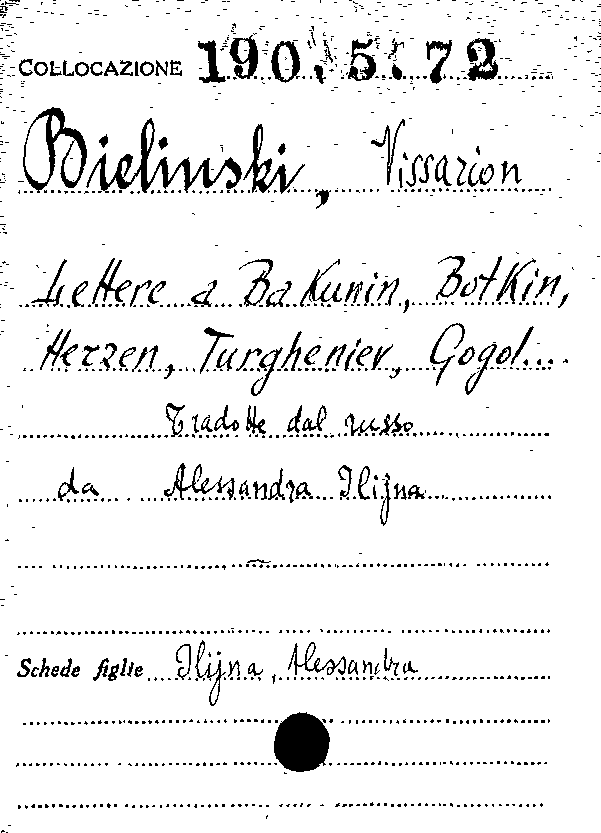 COLLOCAZIONE 190.5.72
Bielinski, Vissarion
Lettere a Bakunin, Botkin,
Herzen, Turgheniev, Gogol....
Tradotte dal russo
da Alessandra Ilijna
Schede figlie Ilijna, Alessandra